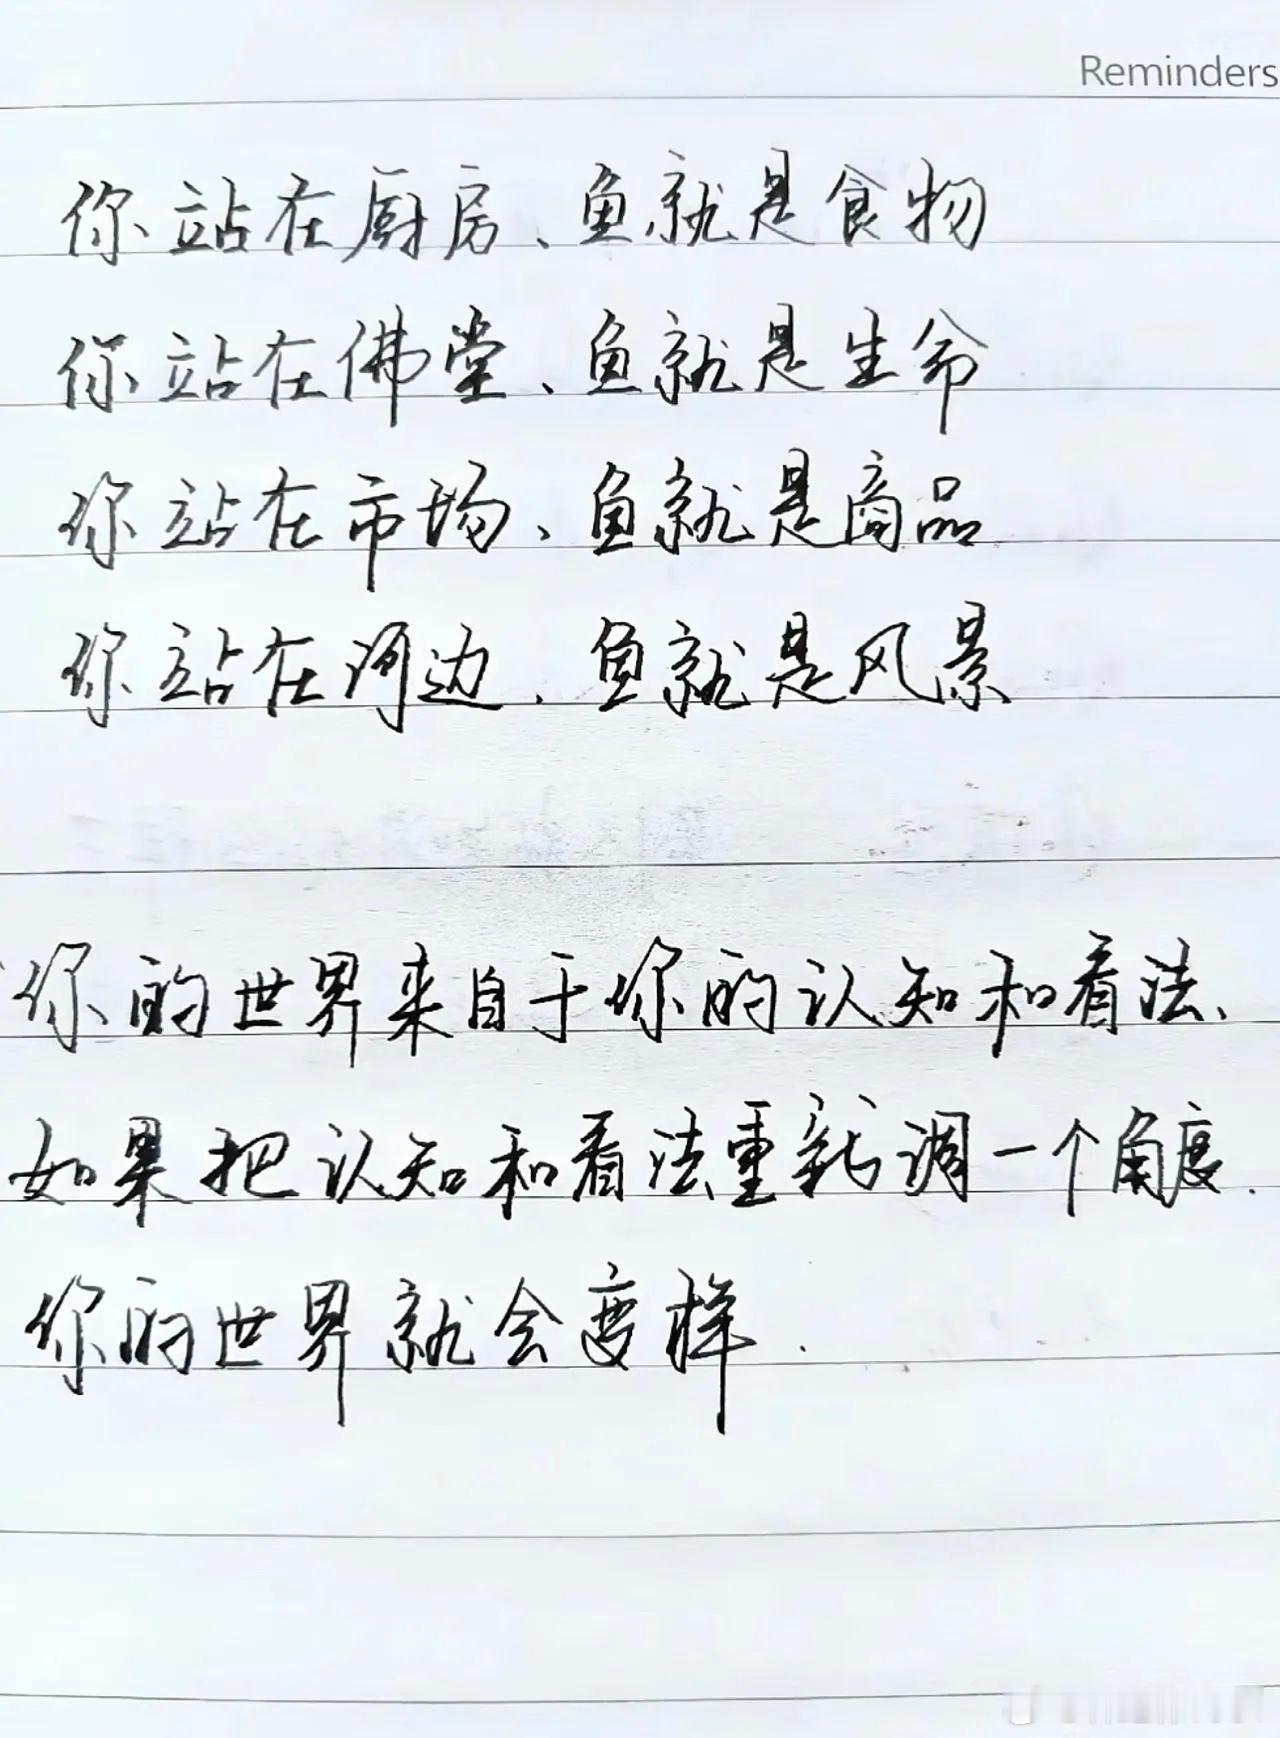 Reminders
你站在厨房、鱼就是食物
你站在佛堂、鱼就是生命
你站在市场、鱼就是商品
你站在河边、鱼就是风景
你的世界来自于你的认知和看法、
如果把认知和看法重新调一个角度.
你的世界就会变样.